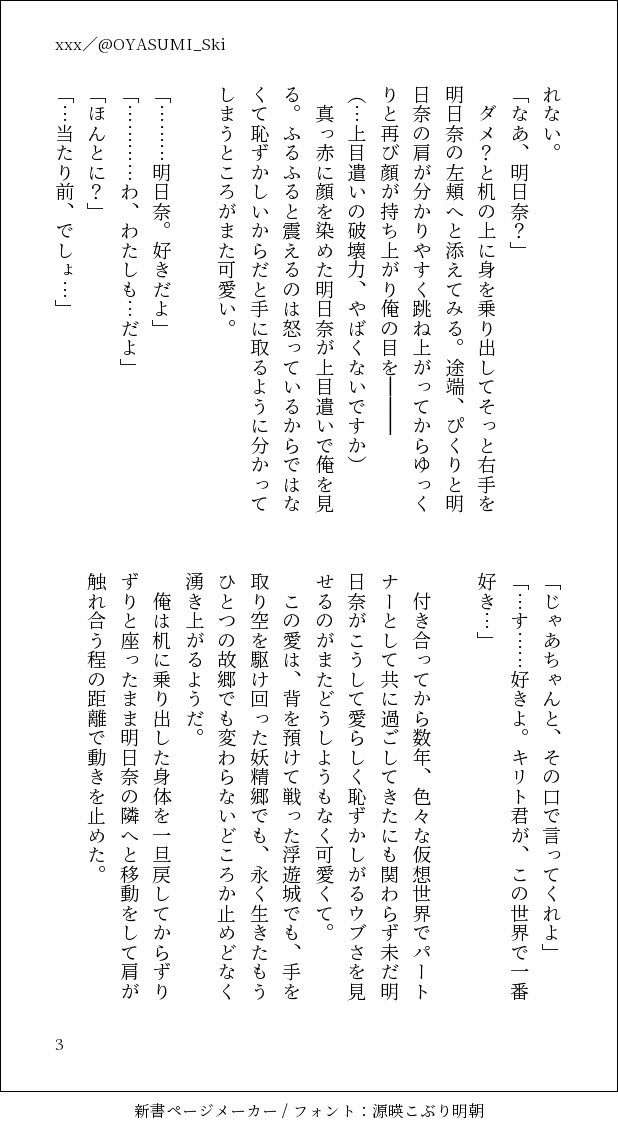 xxx／@OYASUMI_Ski
れない。
「なあ、明日奈？」
　ダメ？と机の上に身を乗り出してそっと右手を
明日奈の左頬へと添えてみる。途端、ぴくりと明
日奈の肩が分かりやすく跳ね上がってからゆっく
りと再び顔が持ち上がり俺の目を―――
（…上目遣いの破壊力、やばくないですか）
　真っ赤に顔を染めた明日奈が上目遣いで俺を見
る。ふるふると震えるのは怒っているからではな
くて恥ずかしいからだと手に取るように分かって
しまうところがまた可愛い。
「………明日奈。好きだよ」
「…………わ、わたしも…だよ」
「ほんとに？」
「…当たり前、でしょ…」
「じゃあちゃんと、その口で言ってくれよ」
「…す……好きよ。キリト君が、この世界で一番
好き…」
　付き合ってから数年、色々な仮想世界でパート
ナーとして共に過ごしてきたにも関わらず未だ明
日奈がこうして愛らしく恥ずかしがるウブさを見
せるのがまたどうしようもなく可愛くて。
　この愛は、背を預けて戦った浮遊城でも、手を
取り空を駆け回った妖精郷でも、永く生きたもう
ひとつの故郷でも変わらないどころか止めどなく
湧き上がるようだ。
　俺は机に乗り出した身体を一旦戻してからずり
ずりと座ったまま明日奈の隣へと移動をして肩が
触れ合う程の距離で動きを止めた。
3
新書ページメーカー / フォント：源暎こぶり明朝